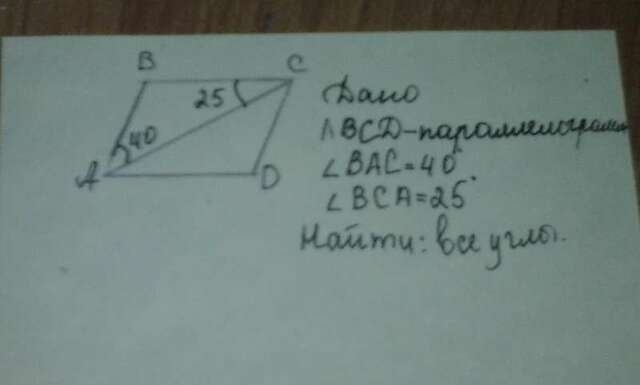 B C
25
40
A D
Дано
ABCD-параллелограмм
∠BAC=40°
∠BCA=25°
Найти: все углы.